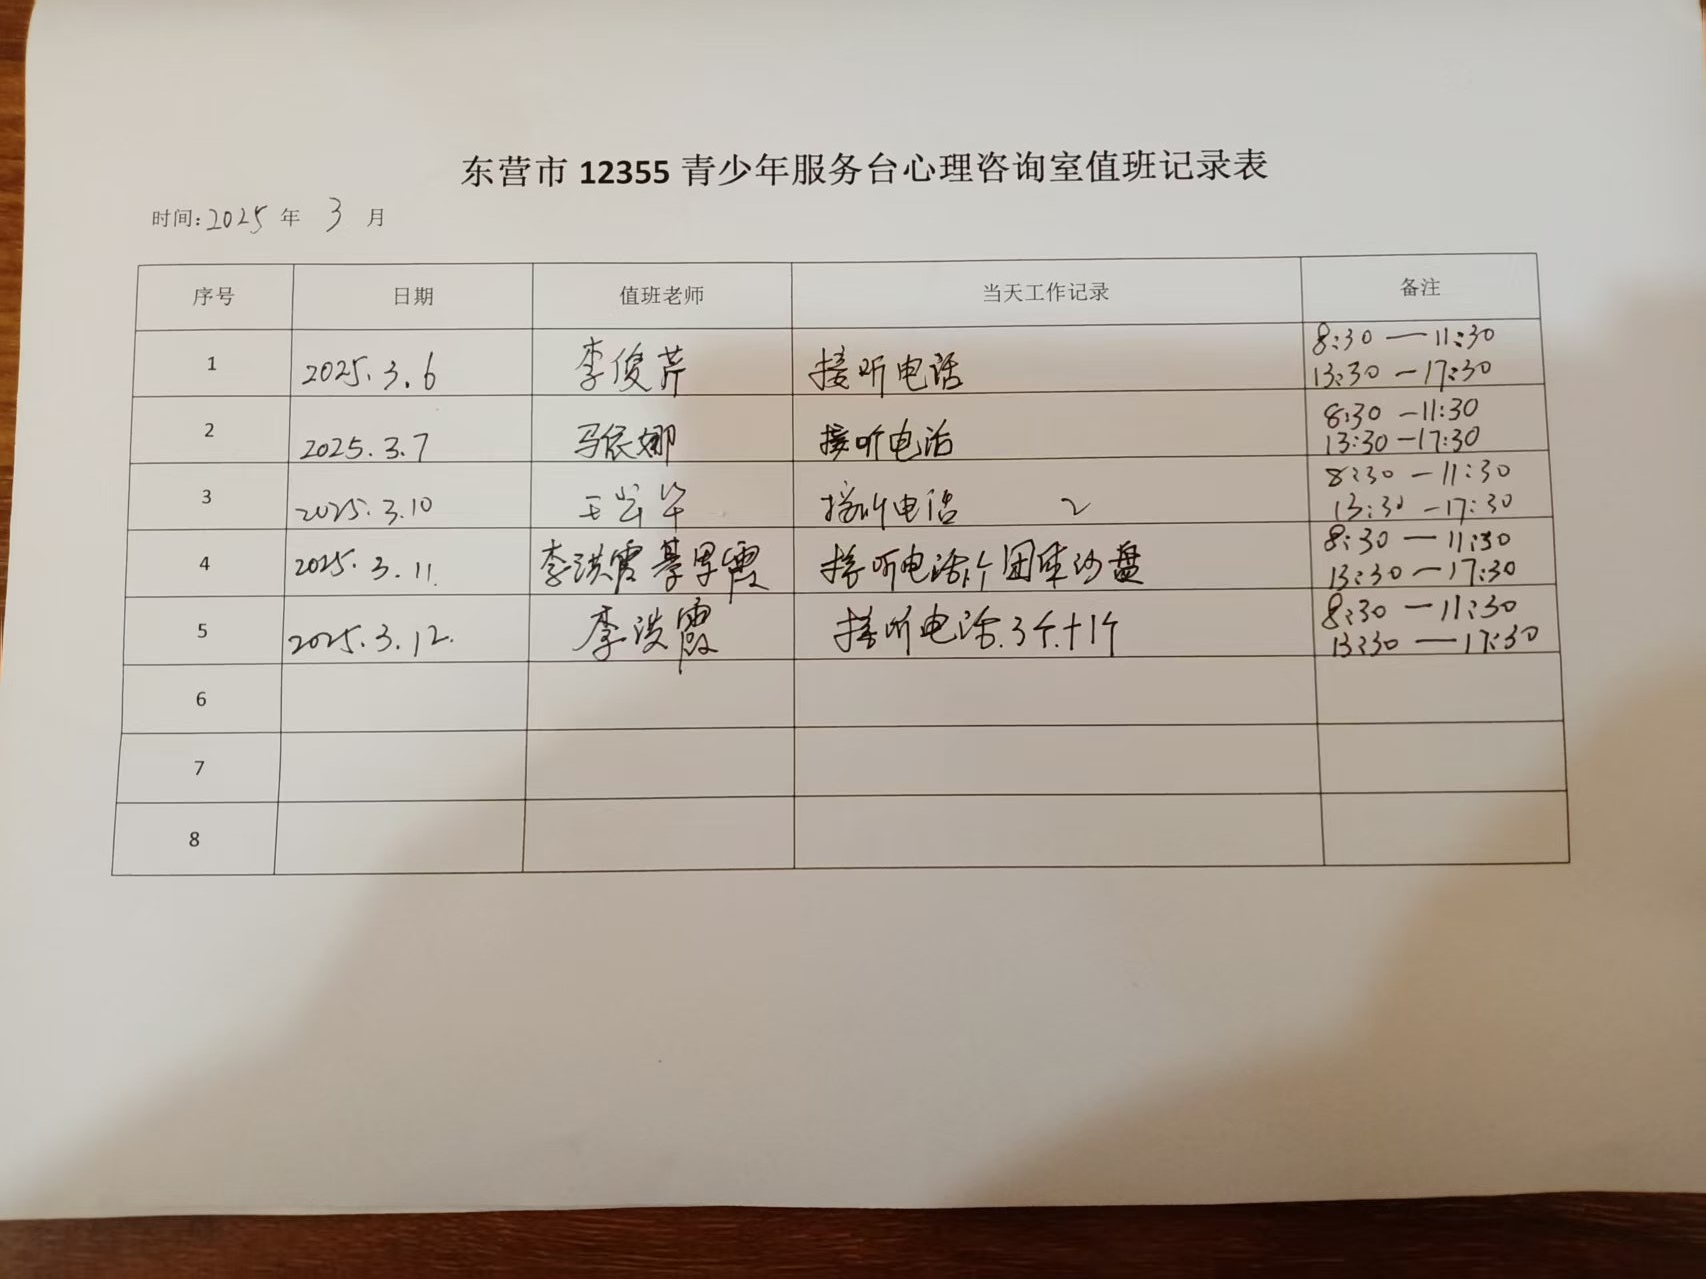 东营市 12355 青少年服务台心理咨询室值班记录表
时间: 2025 年 3 月
序号 日期 值班老师 当天工作记录 备注
1 2025.3.6 李俊芹 接听电话 8:30 — 11:30
13:30 — 17:30
2 2025.3.7 马依娜 接听电话 8:30 — 11:30
13:30 — 17:30
3 2025.3.10 王 接听电话 2 8:30 — 11:30
13:30 — 17:30
4 2025.3.11. 李洪霞 霞 接听电话1个 团体沙盘 8:30 — 11:30
13:30 — 17:30
5 2025.3.12. 李洪霞 接听电话.3个.+1个 8:30 — 11:30
13:30 — 17:30
6
7
8